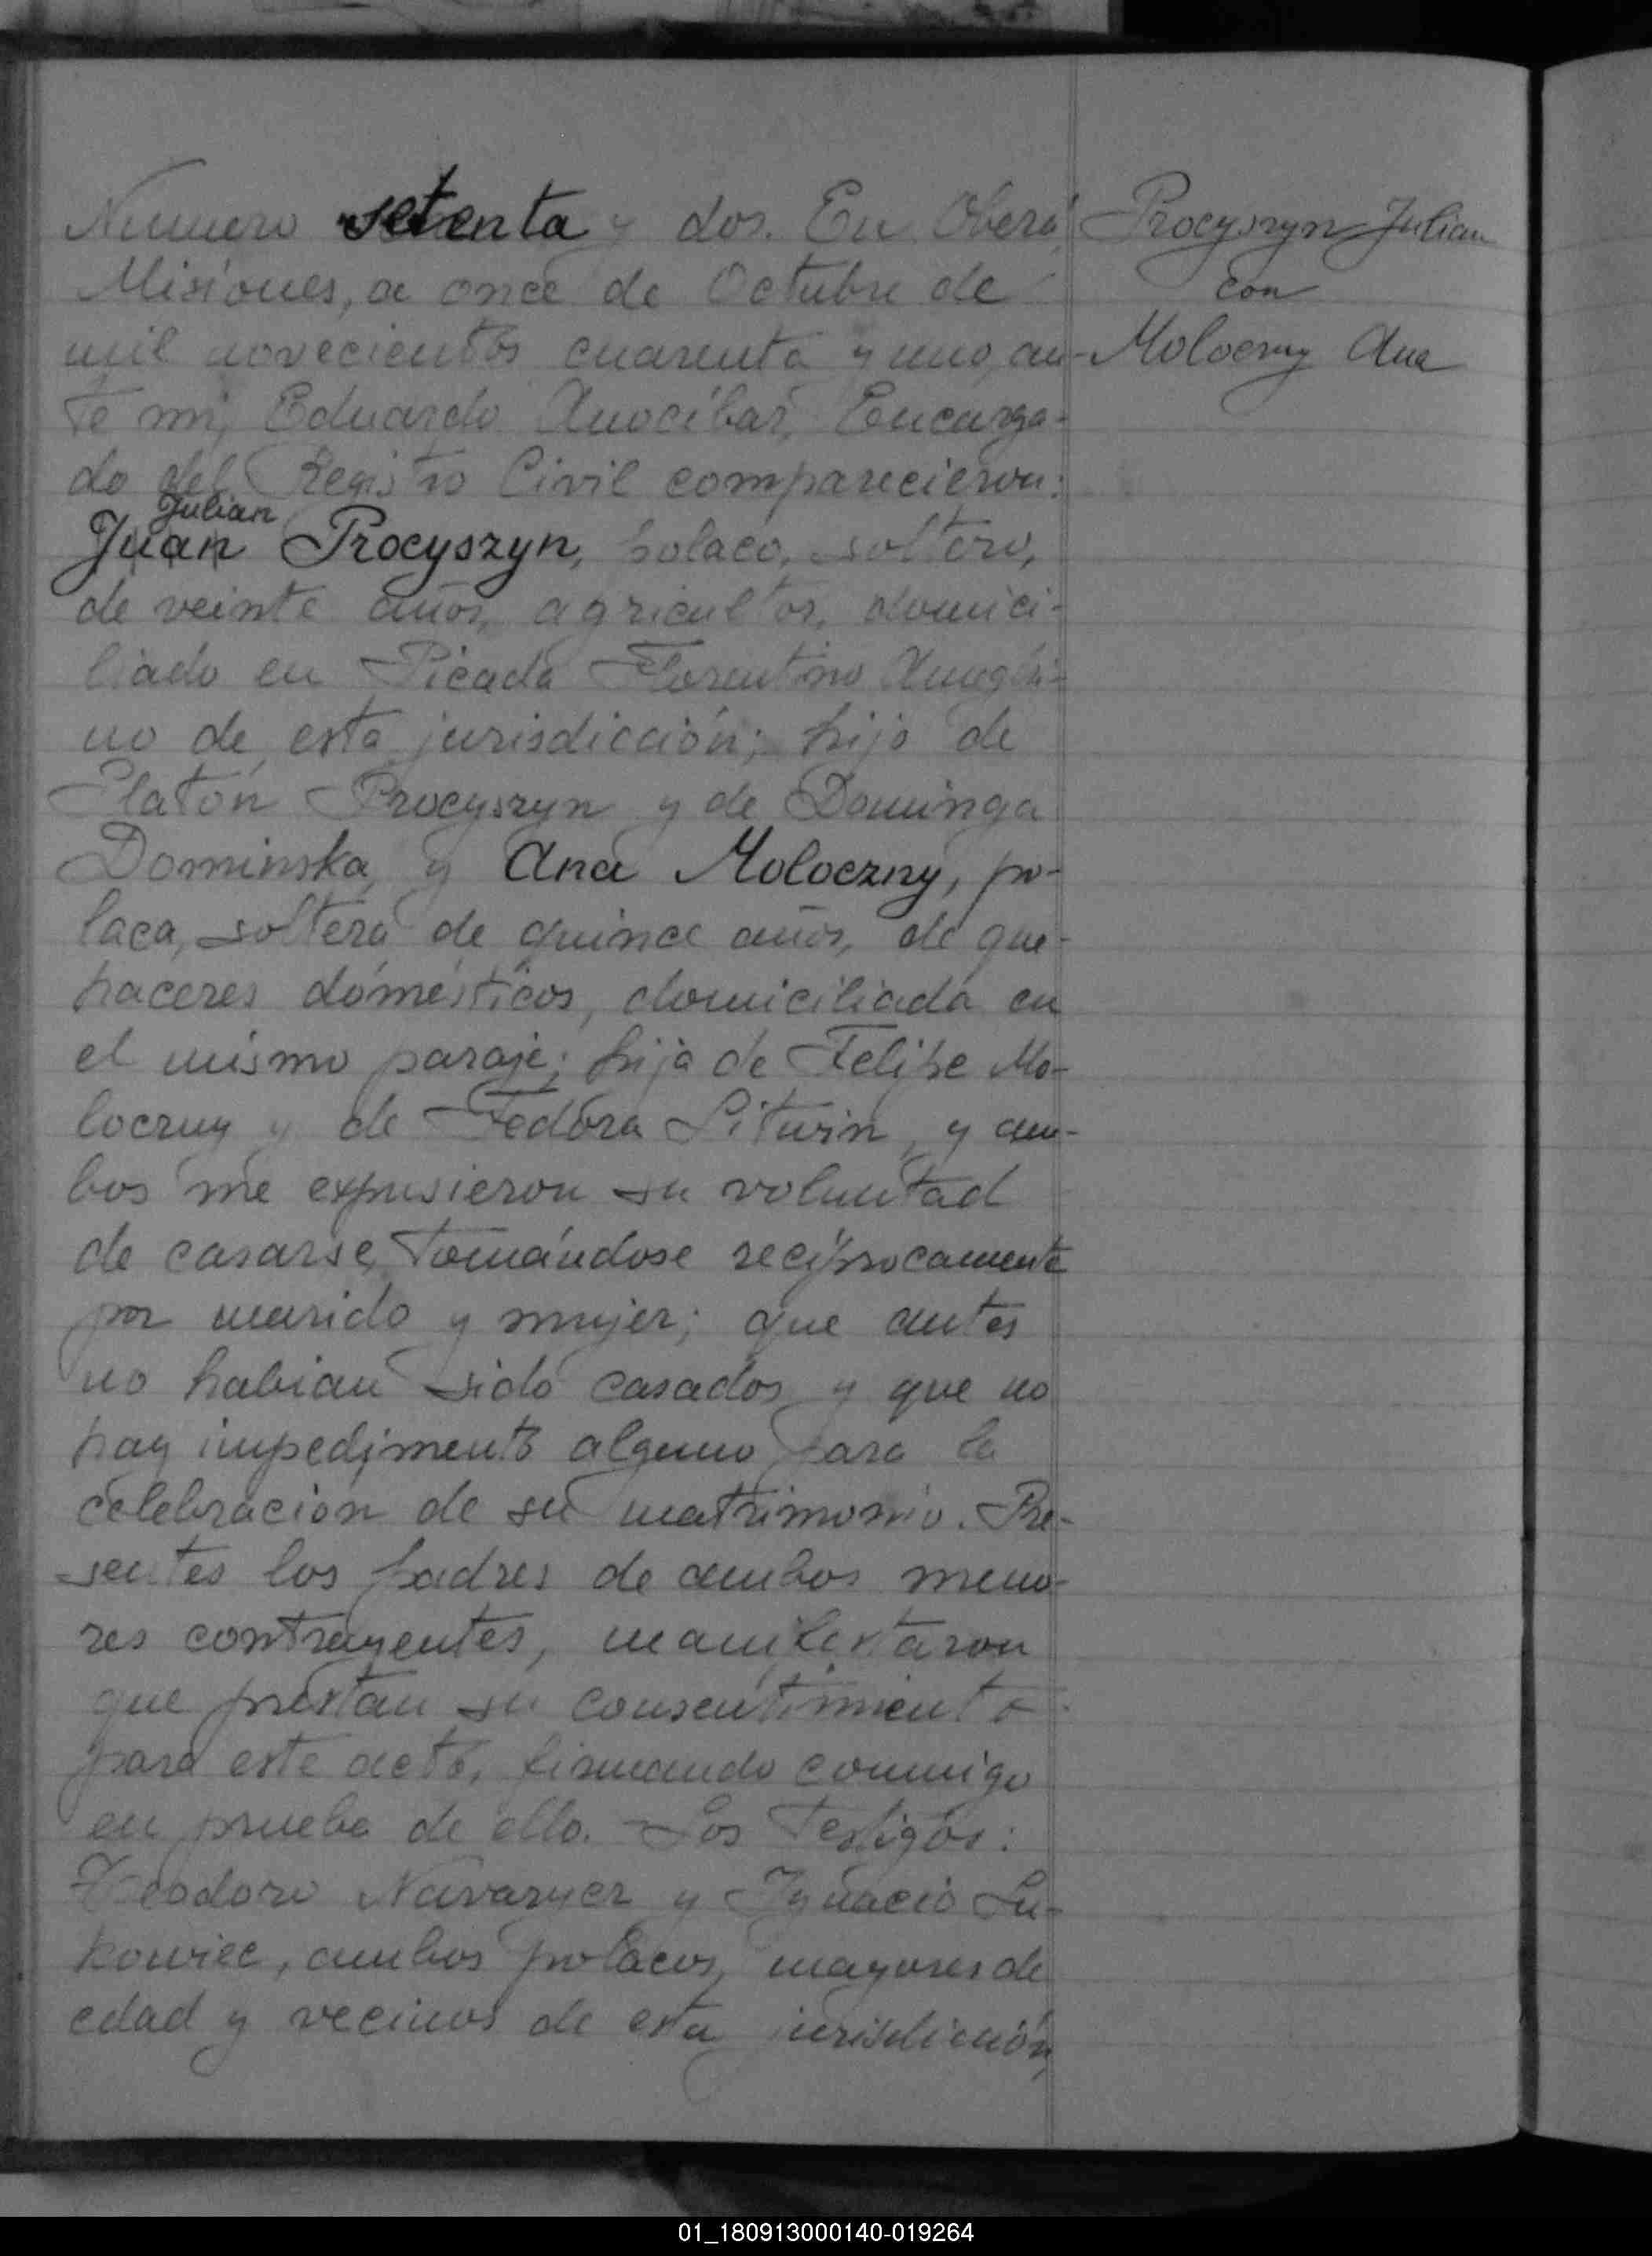 Numero setenta y dos. En Oberá,
Misiones, a once de Octubre de
mil novecientos cuarenta y uno, an-
te mi, Eduardo Anocíbar, Encarga-
do del Registro Civil comparecieron:
Julian
Juan Procyszyn, polaco, soltero,
de veinte años, agricultor, domici-
liado en Picada Florentino Ameghi-
no de esta jurisdicción; hijo de
Platón Procyszyn y de Dominga
Dominska, y Ana Moloczny, po-
laca, soltera de quince años, de que-
haceres domésticos, domiciliada en
el mismo paraje; hija de Felipe Mo-
loczny y de Fedora Litwin, y am-
bos me expusieron su voluntad
de casarse, tomándose recíprocamente
por marido y mujer; que antes
no habian sido casados y que no
hay impedimento alguno para la
celebración de su matrimonio. Pre-
sentes los padres de ambos meno-
res contrayentes, manifestaron
que prestan su consentimiento
para este acto, firmando conmigo
en prueba de ello. Los Testigos:
Teodoro y Ignacio Lu-
kowiec, ambos polacos, mayores de
edad y vecinos de esta jurisdicción,
Procyszyn Julian
con
Moloczny Ana
01_180913000140-019264